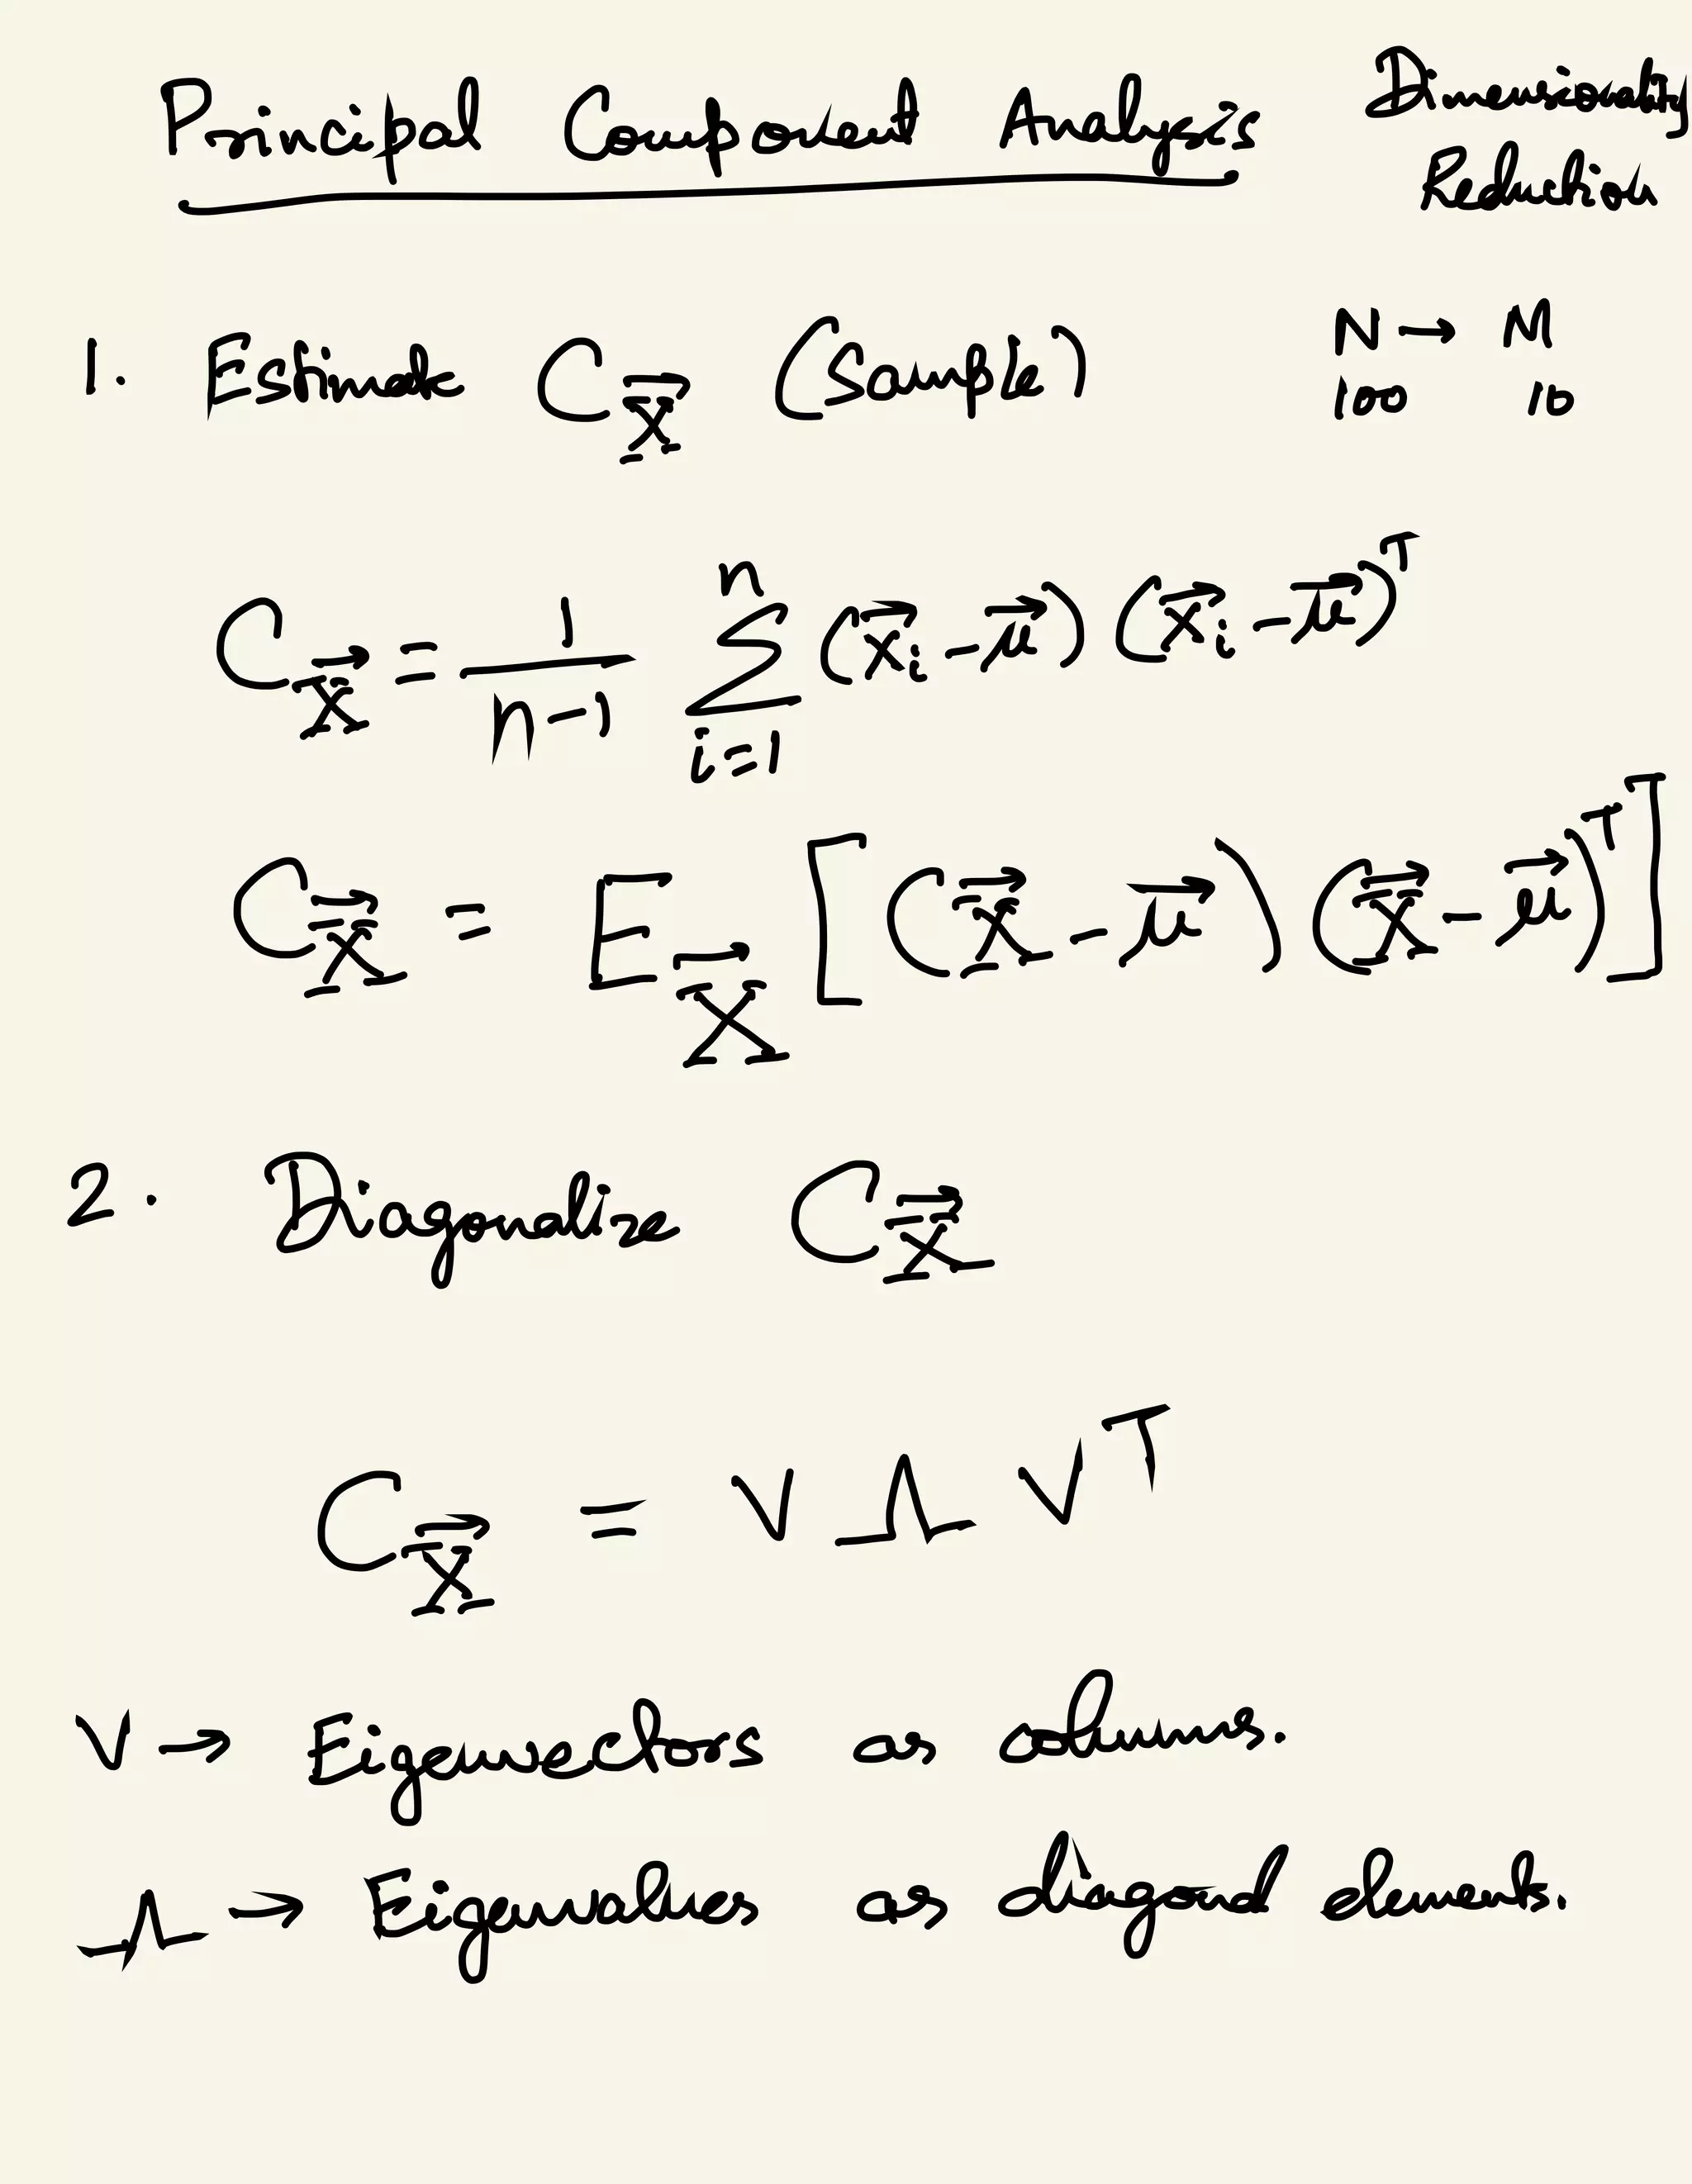 Principal Component Analysis
Dimensionality
Reduction
1. Estimate C_X⃗ (Sample)
N → M
100 10
C_X⃗ = 1/(n-1) Σ_{i=1}^{n} (x⃗_i - μ⃗) (x⃗_i - μ⃗)^T
C_X⃗ = E_X⃗ [(X⃗ - μ⃗) (X⃗ - μ⃗)^T]
2. Diagonalize C_X⃗
C_X⃗ = V Λ V^T
V → Eigenvectors as columns.
Λ → Eigenvalues as diagonal elements.